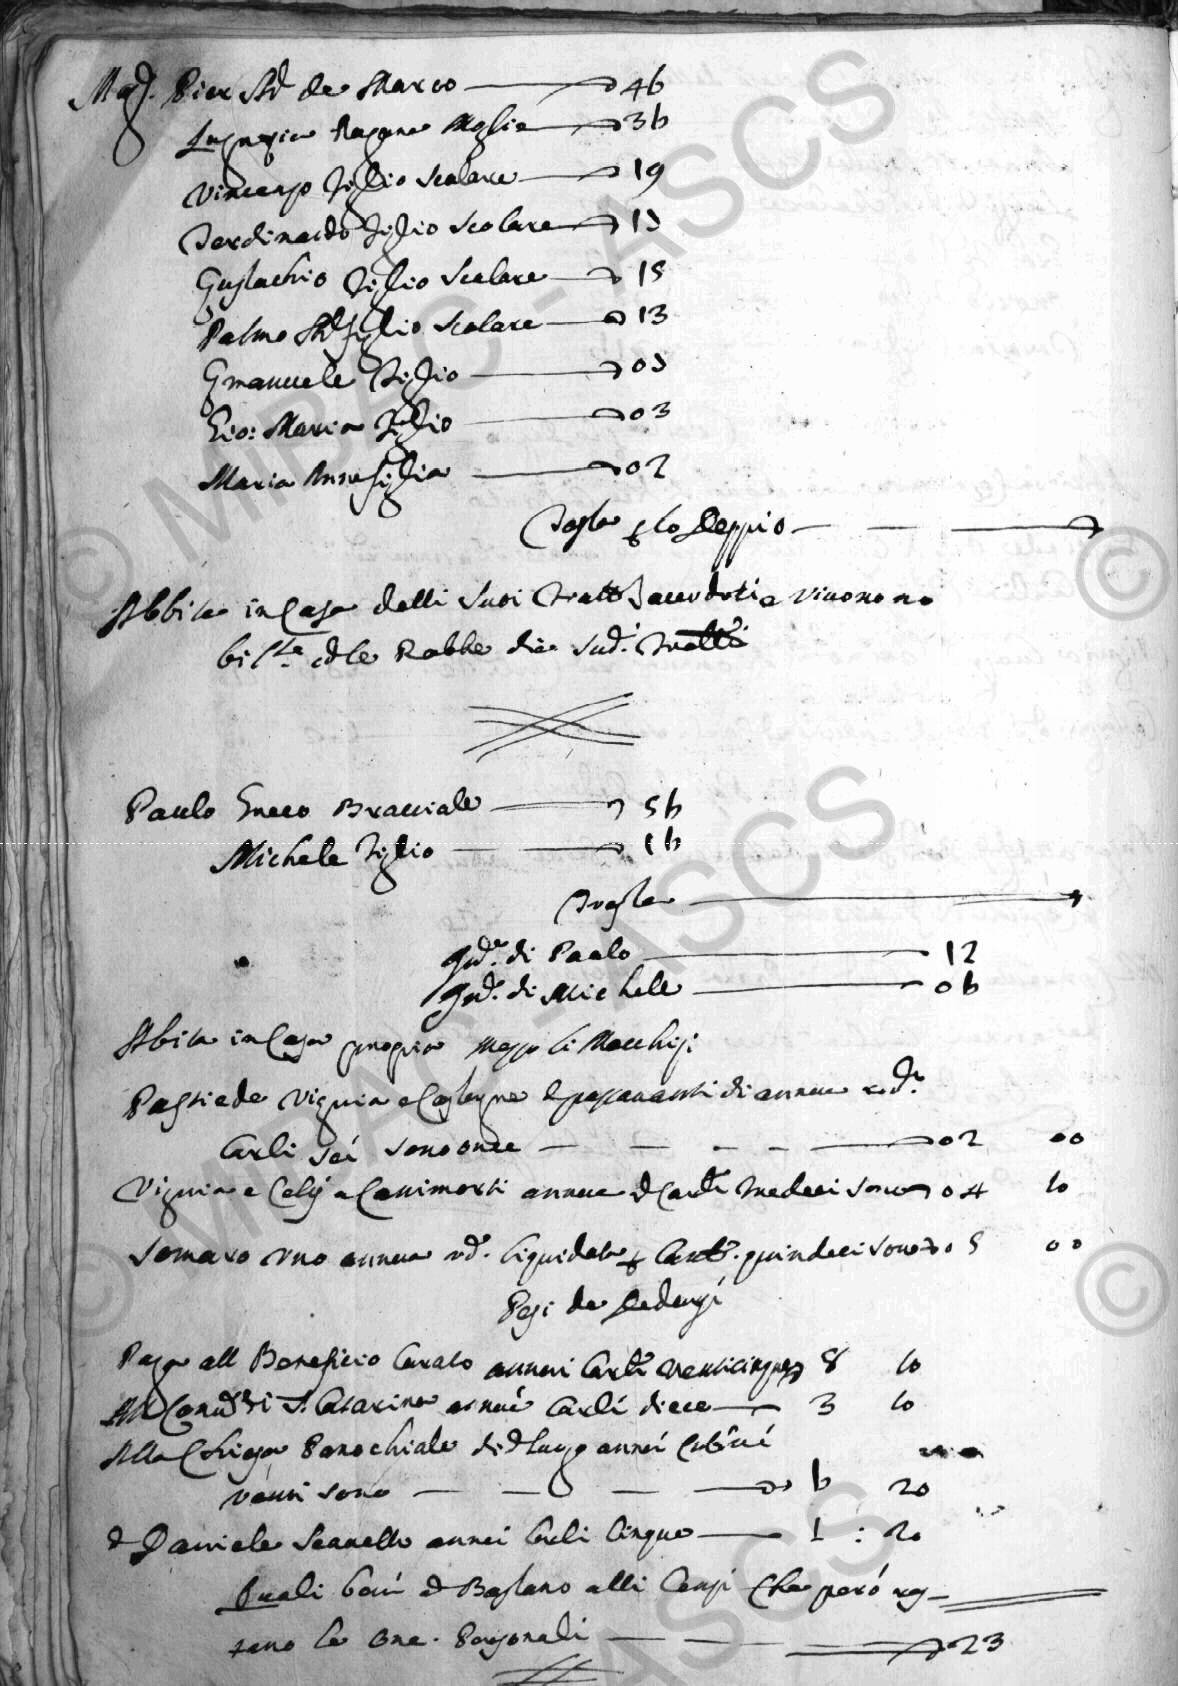 Mag. Pier Ant.° de Marco 46
Lugrezia Ragane Moglie 36
Vincenzo Figlio Scolare 19
Ferdinando Figlio Scolare
Gustachio Figlio Scolare 15
Palmo Figlio Scolare 13
Emanuele Figlio
Gio: Maria Figlio 03
Maria Anna figlia 02
Testa Doppio
Abbita in Casa delli Suoi Fratti Sacerdoti e Vivono no
Robbe die Sud.i Fratti
Paulo Greco Bracciale 56
Michele Figlio 16
Testa
Ind.a di Paulo 12
Ind.a di Michele 06
Abita in Casa propria Mezzo li Macchisi
Possiede Vigna e Castagne di annua r.da
Carli Sei Sono once 02 00
Vigna e Celsi a Canimorti annua Carli Tredeci Sono 04 10
Somaro Uno annua rd.a liquidata Carli quindeci Sono 05 00
Pesi da Dedursi
Paga all Beneficio Curato annui Carli Venticinque 8 10
All Conv.to di S. Catarina annui Carli diece 3 10
Alla Chiesa Parochiale di d.o luogo annui
Venti Sono 6 20
a Daniele Scanello annui Carli Cinque 1 : 20
Quali beni Bastano alli Censi Che però res-
tano le One. Personali 23
© MIBAC - ASCS
© MIBAC - ASCS
© MIBAC - ASCS